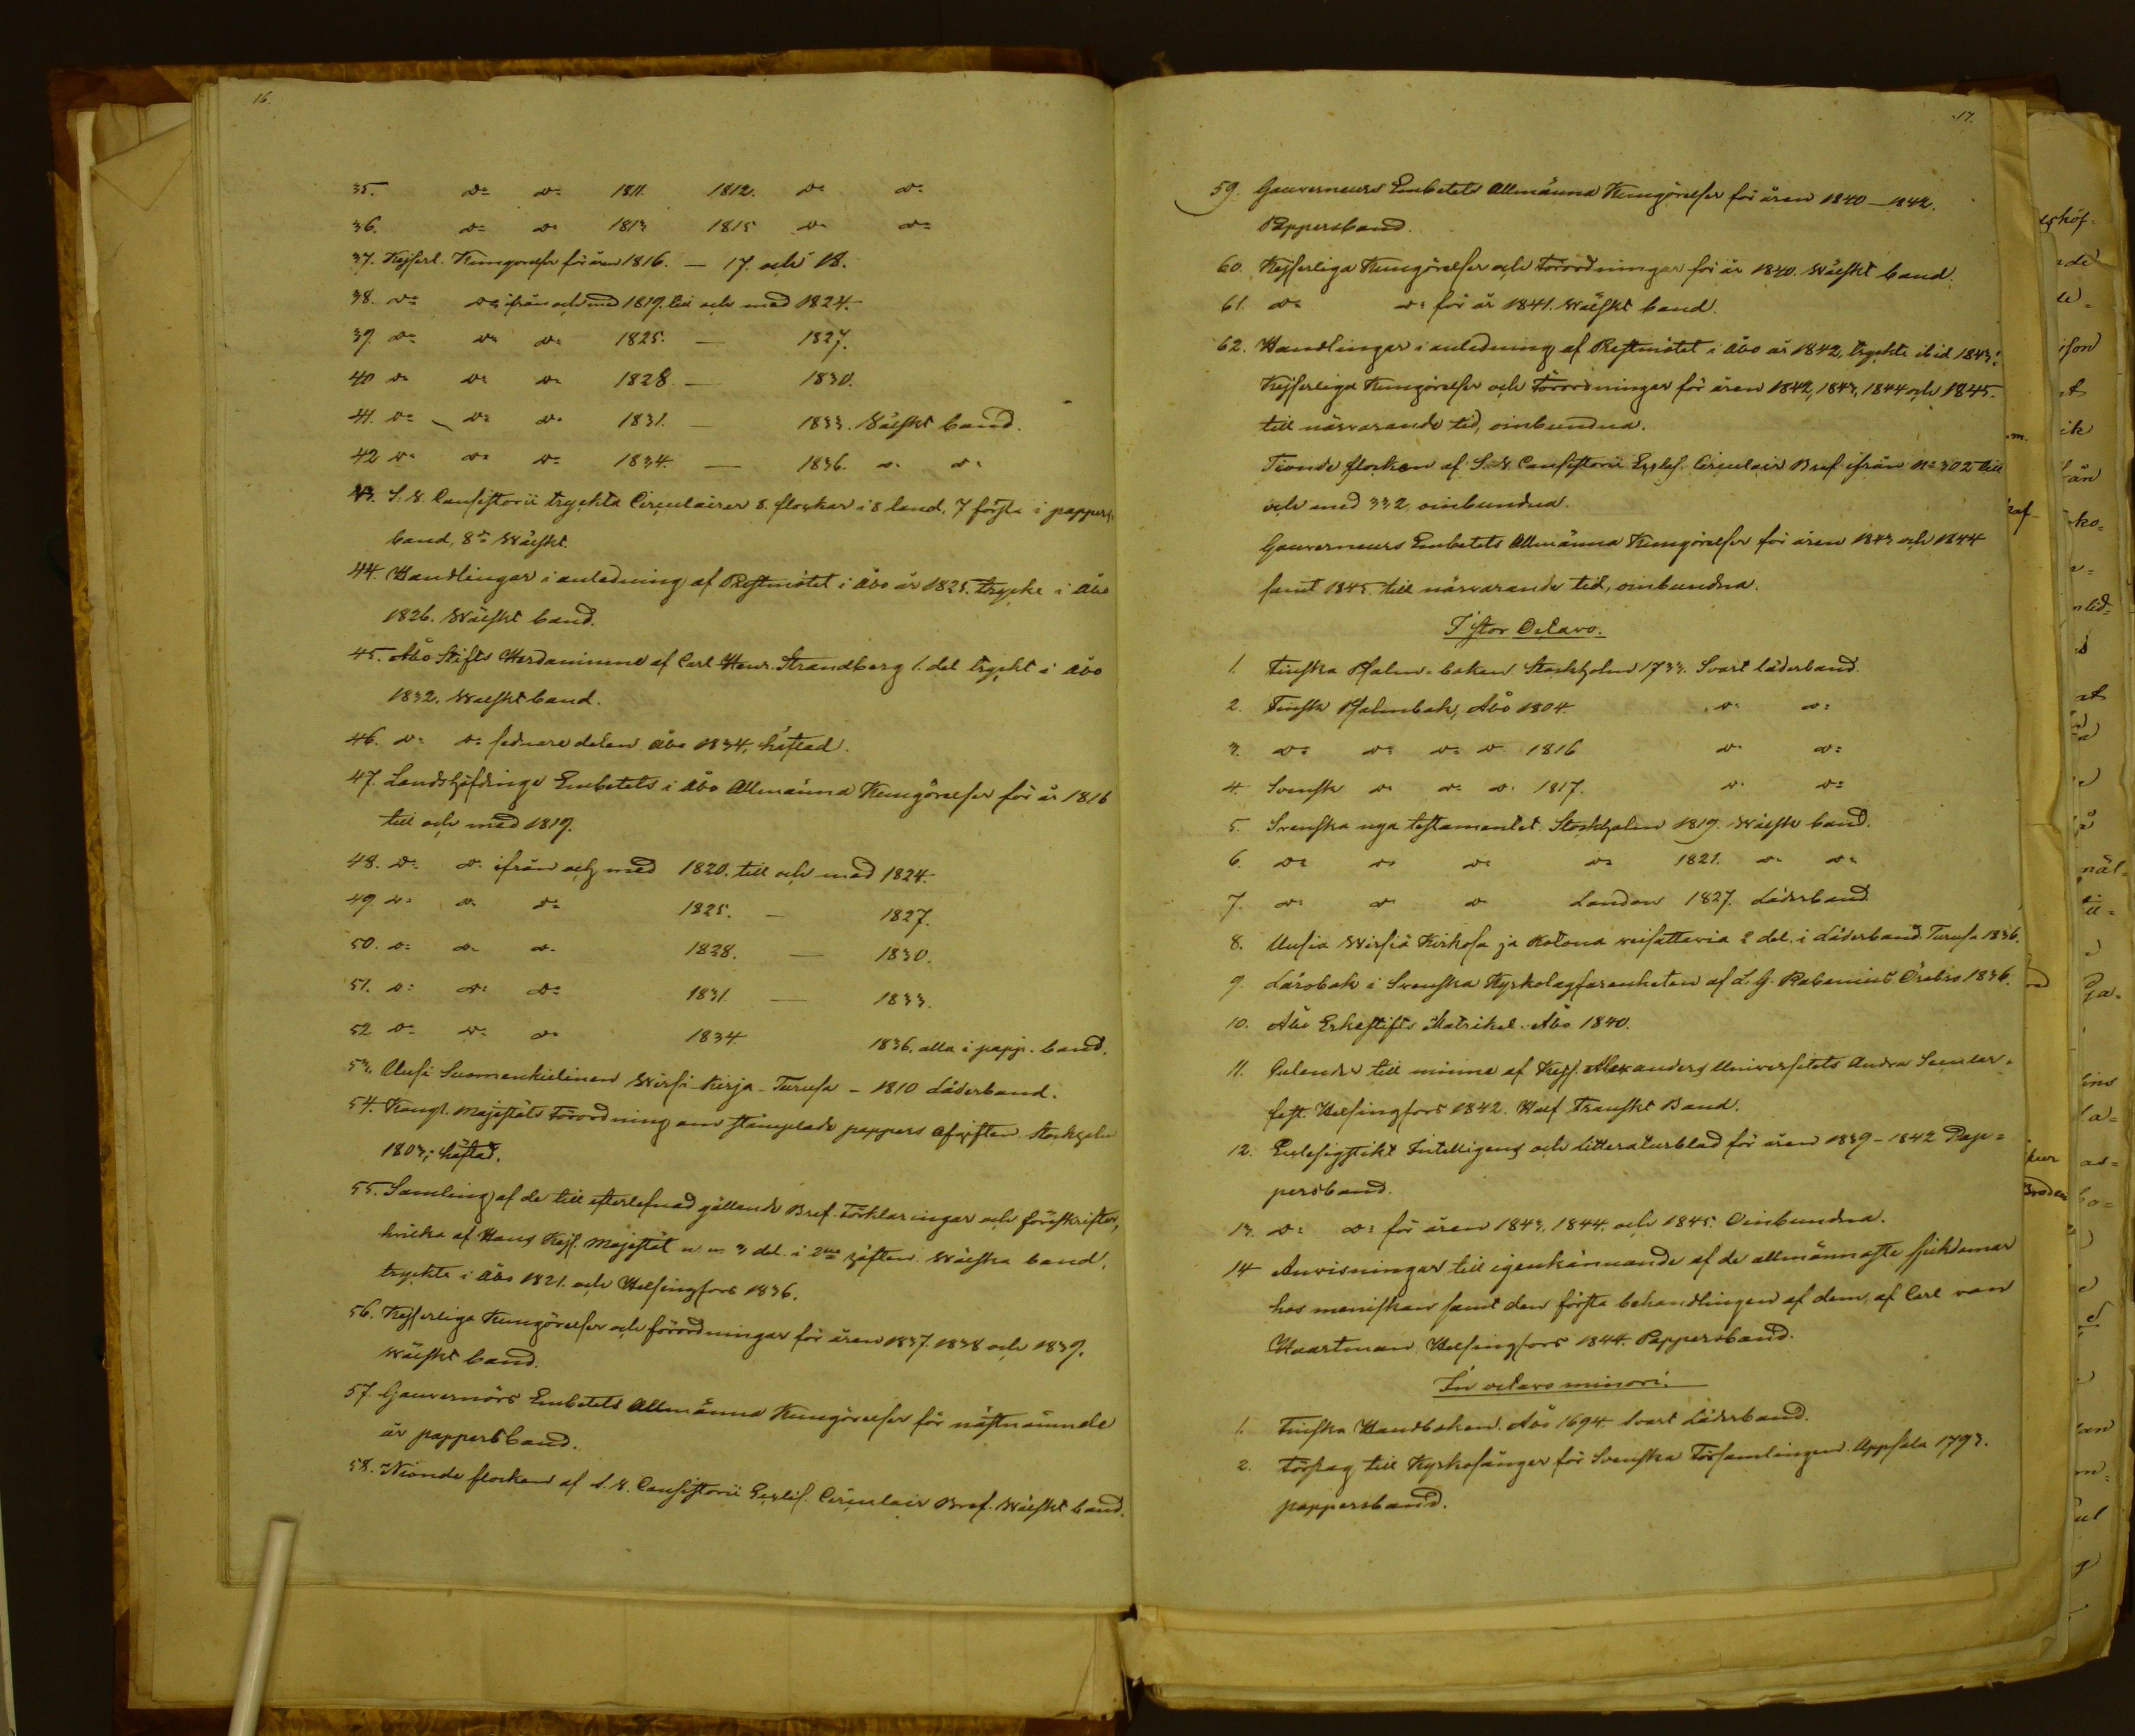 16.
35. do do 1811. 1812. do do
36. do do 1813 1815 do do
37. Kejserl. Kungörelser för åren 1816. — 17. och 18.
38. do do ifrån och med 1819. till och med 1824.
39. do do do 1825. — 1827.
40 do do do 1828. — 1830.
41. do do do 1831. — 1833. Wälskt band.
42 do do do 1834. — 1836. do do
43. S. V. Consistorii tryckta Circulairer 8. flockar i 8 band, 7 första i pappers-
band, 8de Wälskt.
44. Handlingar i anledning af Prestmötet i Åbo år 1825. tryckt i Åbo
1826. Wälskt band.
45. Åbo Stifts Herdaminne af Carl Henr. Strandberg 1. del tryckt i Åbo
1832. Wälskt band.
46. do do sednare delen Åbo 1834, häftad.
47. Landshöfdinge Embetets i Åbo Allmänna Kungörelser för år 1816
till och med 1819.
48. do do ifrån och med 1820. till och med 1824.
49. do do do 1825. — 1827.
50. do do do 1828. — 1830.
51. do do do 1831. — 1833.
52 do do do 1834 1836. alla i papp. band.
53. Uusi Suomenkielinen Wirsi-Kirja - Turusa - 1810 Läderband.
54. Kongl. Majestäts Förordning om stämplade pappers Afgiften Stockholm
1803; häftad.
55. Samling af de till efterlefnad gällande Bref. Förklaringar och föreskrifter,
hvilka af Hans Kejs. Majestät m. m. 3 del. i 2ne häften Wälska band,
tryckte i Åbo 1821. och Helsingfors 1836.
56. Kejserliga Kungörelser och förordningar för åren 1837. 1838 och 1839.
Wälskt band.
57. Gouvernörs Embetets Allmänna Kungörelser för nästnämnde
år pappersband.
58. Nionde flocken af S. V. Consistorii Eccles. Circulair Bref. Wälskt band.
17.
59. Gouverneurs Embetets Allmänna Kungörelser för åren 1840 — 1842.
Pappersband.
60. Kejserliga Kungörelser och Förordningar för år 1840. Wälskt band.
61. do do för år 1841. Wälskt band.
62. Handlingar i anledning af Prestmötet i Åbo år 1842, tryckte ibid 1843.
Kejserliga Kungörelser och Förordningar för åren 1842, 1843, 1844 och 1845.
till närvarande tid, oinbundna.
Tionde flocken af S. V. Consistorii Eccles. Circulair Bref ifrån No 302 till
och med 332, oinbundna.
Gouverneurs Embetets Allmänna Kungörelser för åren 1843 och 1844
samt 1845. till närvarande tid, oinbundna.
I stor Octavo.
1. Finska Psalm-boken Stockholm 1733. Svart läderband.
2. Finsk Psalmbok, Åbo 1804. do do
3. do do do do 1816 do do
4. Svensk do do do 1817. do do
5. Svenska nya testamentet. Stockholm 1819. Wälskt band.
6. do do do do 1821. do do
7. do do do London 1827. Läderband
8. Uusia Wirsiä Kirkosa ja Kotona weisattavia 2 del. i Läderband. Turusa 1836.
9. Lärobok i Svenska Kyrkolagfarenheten af L. G. Rabenius Örebro 1836.
10. Åbo Erkestifts Matrikel. Åbo 1840.
11. Calender till minne af Kejs. Alexanders Universitets Andra Secular-
fest. Helsingfors 1842. Half Franskt Band.
12. Ecclesiastikt Intelligens och litteraturblad för åren 1839 - 1842 Pap-
persband.
13. do do för åren 1843, 1844, och 1845. Oinbundna.
14 Anvisningar till igenkännande af de allmännaste sjukdomar
hos menniskan samt den första behandlingen af dem, af Carl von
Haartman. Helsingfors 1844. Pappersband.
In octavo minori.
1. Finska Handboken. Åbo 1694. Svart Läderband.
2. Förslag till Kyrkosånger för Svenska Församlingen. Uppsala 1793.
pappersband.